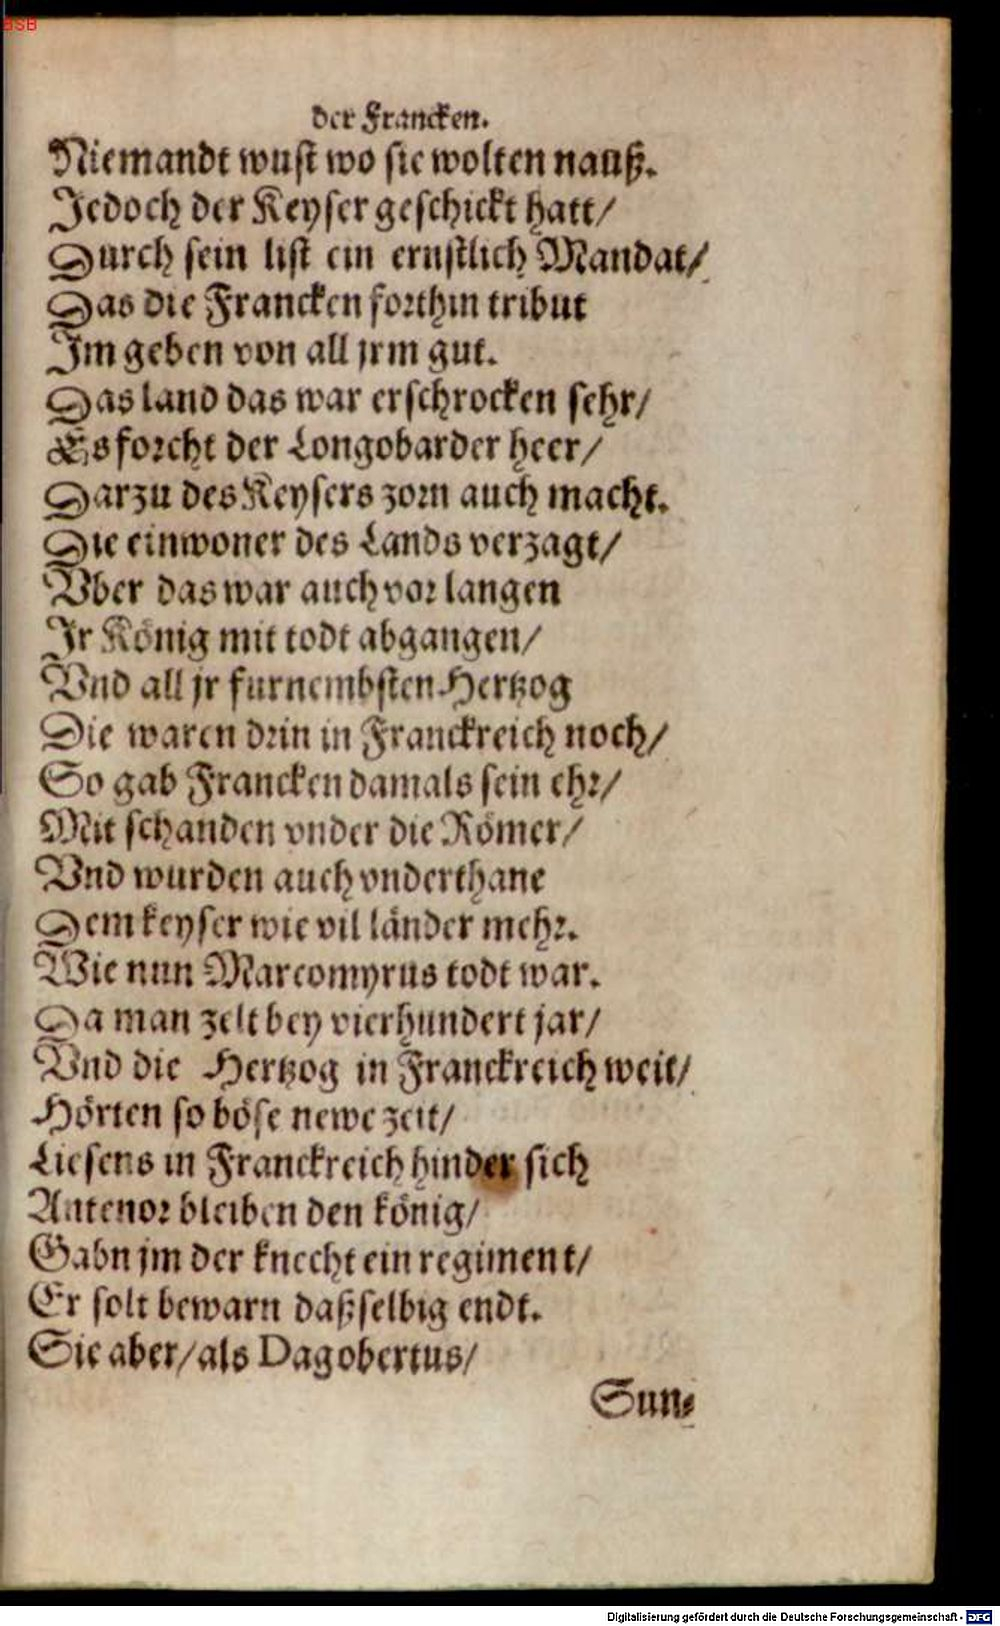 BSB
der Francken.
Niemandt wust wo sie wolten nauß.
Jedoch der Keyser geschickt hatt/
Durch sein list ein ernstlich Mandat/
Das die Francken forthin tribut
Jm geben von all jrm gut.
Das land das war erschrocken sehr/
Es forcht der Longobarder heer/
Darzu des Keysers zorn auch macht.
Die einwoner des Lands verzagt/
Vber das war auch vor langen
Jr König mit todt abgangen/
Vnd all jr furnembsten Hertzog
Die waren drin in Franckreich noch/
So gab Francken damals sein ehr/
Mit schanden vnder die Römer/
Vnd wurden auch vnderthane
Dem keyser wie vil länder mehr.
Wie nun Marcomyrus todt war.
Da man zelt bey vierhundert jar/
Vnd die Hertzog in Franckreich weit/
Hörten so böse newe zeit/
Liesens in Franckreich hinder sich
Antenor bleiben den könig/
Gabn jm der knecht ein regiment/
Er solt bewarn daßselbig endt.
Sie aber/als Dagobertus/
Sun⸗
Digitalisierung gefördert durch die Deutsche Forschungsgemeinschaft - DFG